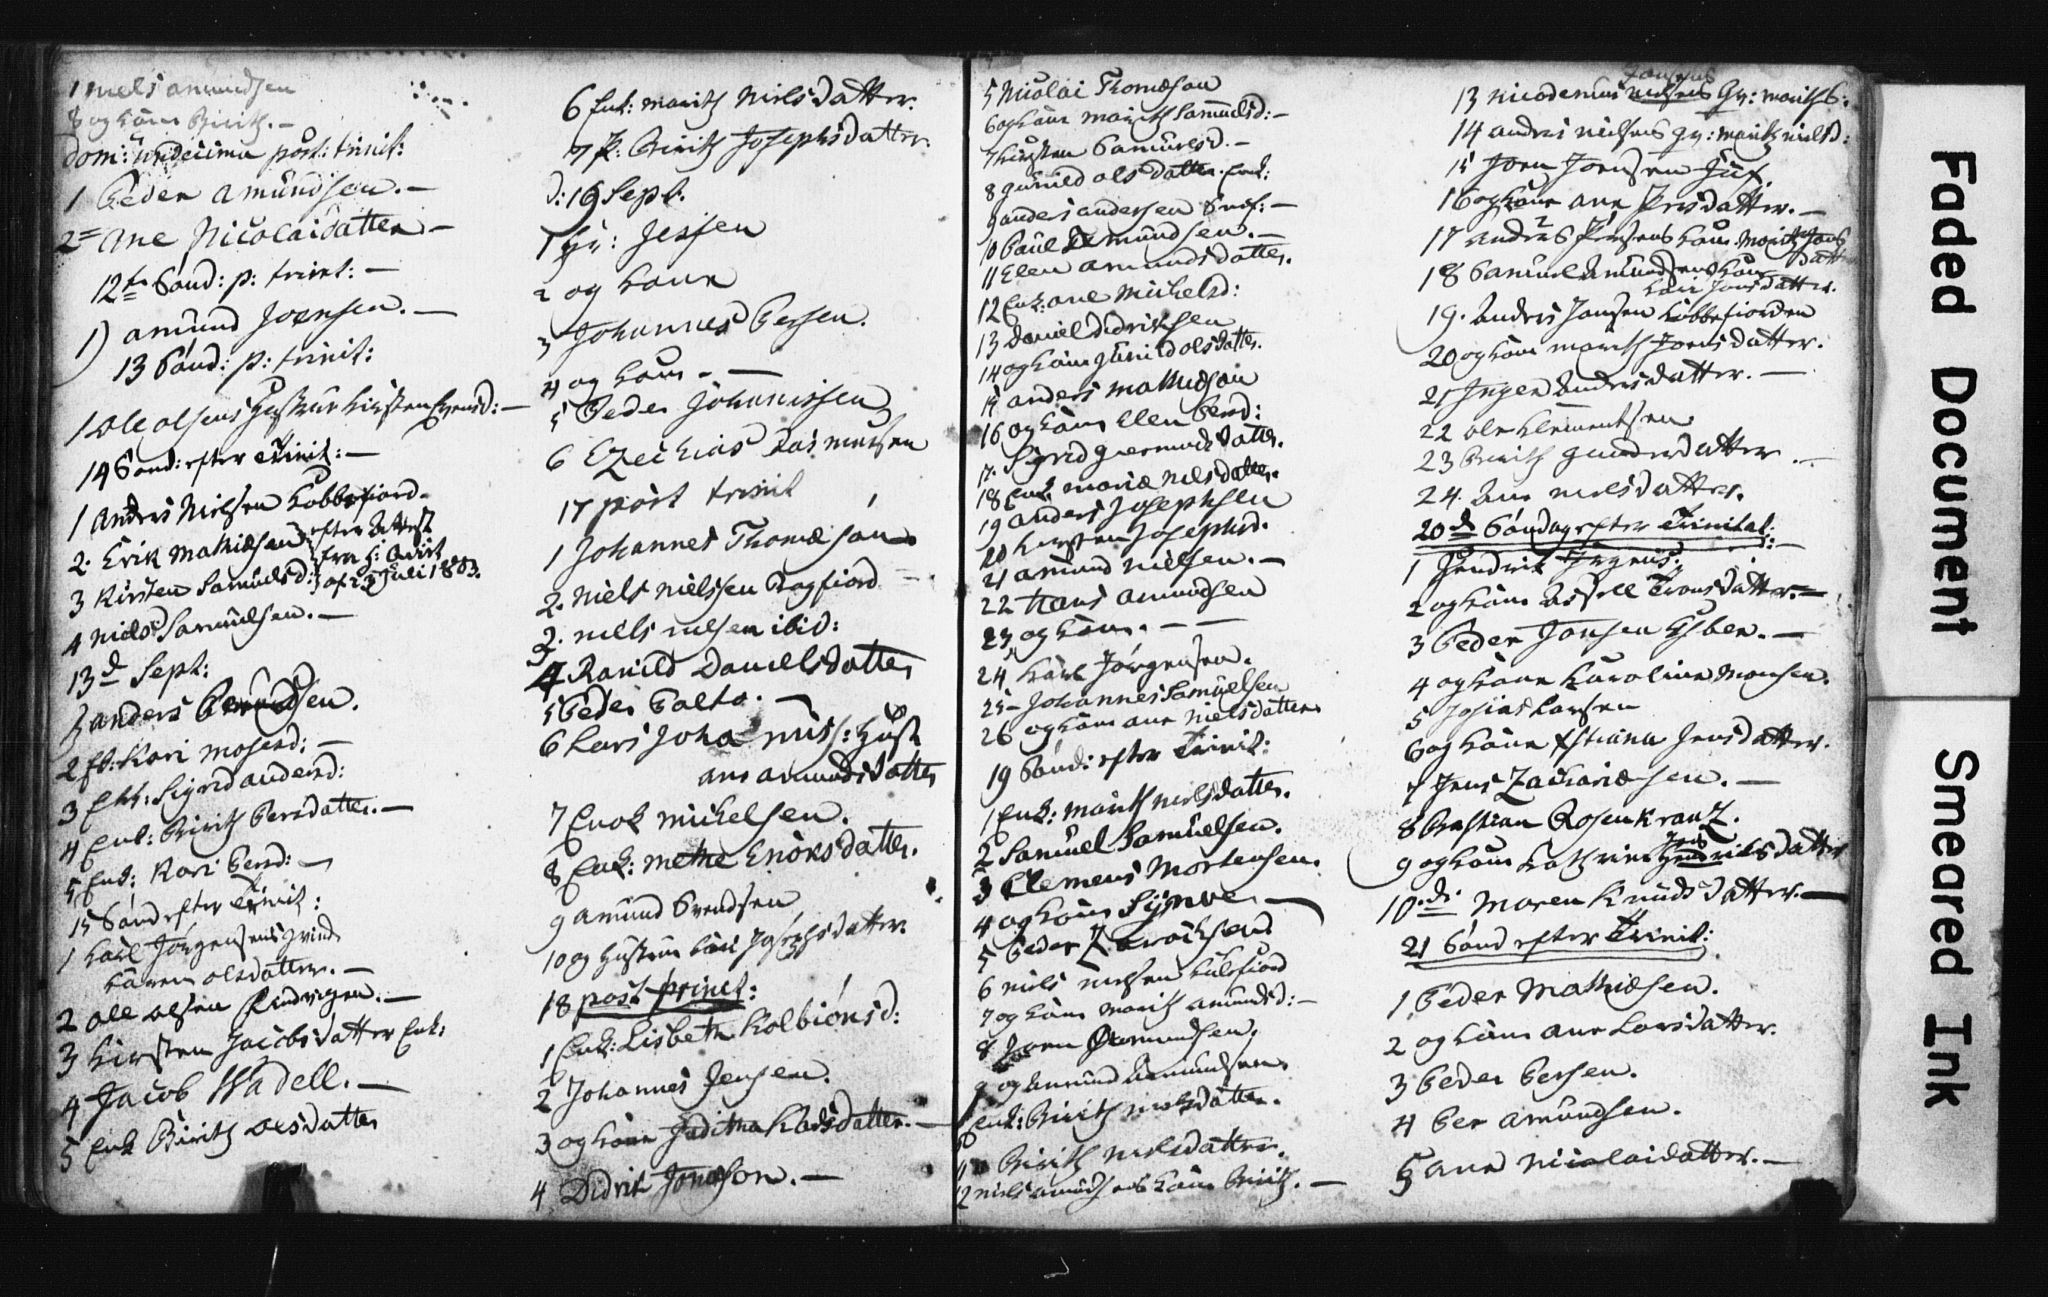 1 niels amundsen
8 og kone Birith. —
Dom: undecima post: trinit:
1 Peder amundsen. —
2 = Ane Nicolaidatter —
12te Sønd: p: trinit: —
1) amund Joensen. —
13 Sønd: p: trinit:
1 Ole olsens Hustrue Kirsten : —
14 Sønd: efter Trinit: —
1 Anders Nielsen Kobbefiord.
2. Erik Mathiesen efter Attest
3 Kirsten Samuelsd: fra
af 23 Juli 1803.
4 niels Samuelsen. —
13d Sept:
1 anders
2 Kari : —
3 Enk: Sigrid andersd:
4 Enk: Birith Persdatter. —
5 Enk: Kari Persd: —
15 Sønd efter Trinit:
1 Karl Jørgensens qvinde
Karen olsdatter. —
2 ole olsen —
3 Kirsten Jacobsdatter Enk:
4 Jacob Wadell. —
5 Enk Birith olsdatter
6 Enk: marith Nielsdatter.
7 P: Birith Josephsdatter
d: 19 Sept.
1 Hr: Jessen
2 og kone
3 Johannes Persen.
4 og kone. —
5 Peder Johannissen
6 Ezechias Rasmussen
17 post trinit
1 Johannes Thomæson
2. Niels Nielssen Bogfiord
3. niels nielsen ibid:
4 Ranild Danielsdatter
5 Peder Balto. —
6 Lars Johannis: Hust
ane amundsdatter
7 Enok mickelsen.
8 Enk: mette Enoksdatter.
9 amund Svendsen
10 og Hustrue Kari Josephsdatter
18 post trinit:
1 Enk: Lisbeth Kolbiönsd:
2 Johannes Jensen.
3 og kone Juditha . —
4 Didrik Jonæson. —
5 Nicolai Thomæson
6 og kone marith Samuelsd: —
7 Kirsten Samuelsd. —
8 gunild olsdatter. Enk:
9 anders andersen : —
10 Paul amundsen. —
11 Elen amundsdatter.
12 Enk: ane Mickelsd:
13 Daniel Didriksen
14 og kone gunild olsdatter.
15 anders mathiesen
16 og kone Elen Persd:
17. Sigrid datter.
18 Enk maria Nielsdatter.
19 anders Josephsen
20 Kirsten Josephsd.
21 amund nielsen. —
22 Hans amundsen
23 og kone. — —
24 Karl Jörgensen.
25 — Johannes Samuelsen
26 og kone ane Nielsdatter
19 Sønd: efter Trinit:
1 Enk: marith nielsdatter.
2 Samuel Samuelsen.
3 Clemens Mortensen.
4 og kone Synve —
5 Peder
6 niels nielsen
7 og kone marith amundsd: —
8 Joen Amundsen.
9 og amund Amundsen
10 Enk: Birith nielsdatter.
11 Birith nielsdatter.
12 niels amundsens kone Birith. —
Jonsens
13 nicodemus Qv: marith S:
14 anders nielsens qv: marith nielsd:
15 Joen Joensen
16 og kone ane Persdatter. —
17 anders Persens kone marith Jons
datt
18 Samuel Amundsens kone
Kari Jonsdatter.
19. Anders Jonsen Kobbefiorden
20 og kone marith Joensdatter.
21 Inger Andersdatter. —
22 ole Klementsen
23 Birith gundersdatter. —
24. Ane nielsdatter.
20d Söndag efter Trinitat: —
1 Hendrik
2 og kone datter. —
3 Peder Jonsen . —
4 og kone Karoline Monsen.
5 Josias Larsen
6 og kone Jensdatter.
7 Jens Zachariæsen. —
8 Bastian Rosenkranz.
9 og kone Kathrine Hendriksdatter
10. di Maren Knudsdatter. —
21 Sønd efter Trinit:
1 Peder Mathiesen.
2 og kone ane Larsdatter.
3 Peder Persen.
4 Per amundsen.
5 ane nicolaidatter. —
Faded Document
Smeared Ink